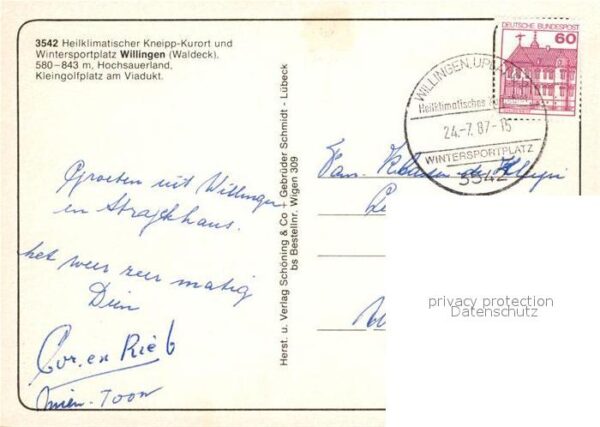 3542 Heilklimatischer Kneipp-Kurort und
Wintersportplatz Willingen (Waldeck).
580–843 m, Hochsauerland.
Kleingolfplatz am Viadukt.
DEUTSCHE BUNDESPOST
60
WILLINGEN, UPLAND
Heilklimatisches
24.-7.87-15
WINTERSPORTPLATZ
3542
Groeten uit Willingen
en
het weer zeer matig
Dien
Cor. en Rie
Toon
Herst. u. Verlag Schöning & Co + Gebrüder Schmidt - Lübeck
bs Bestellnr. Wigen 309
Fam.
privacy protection
Datenschutz